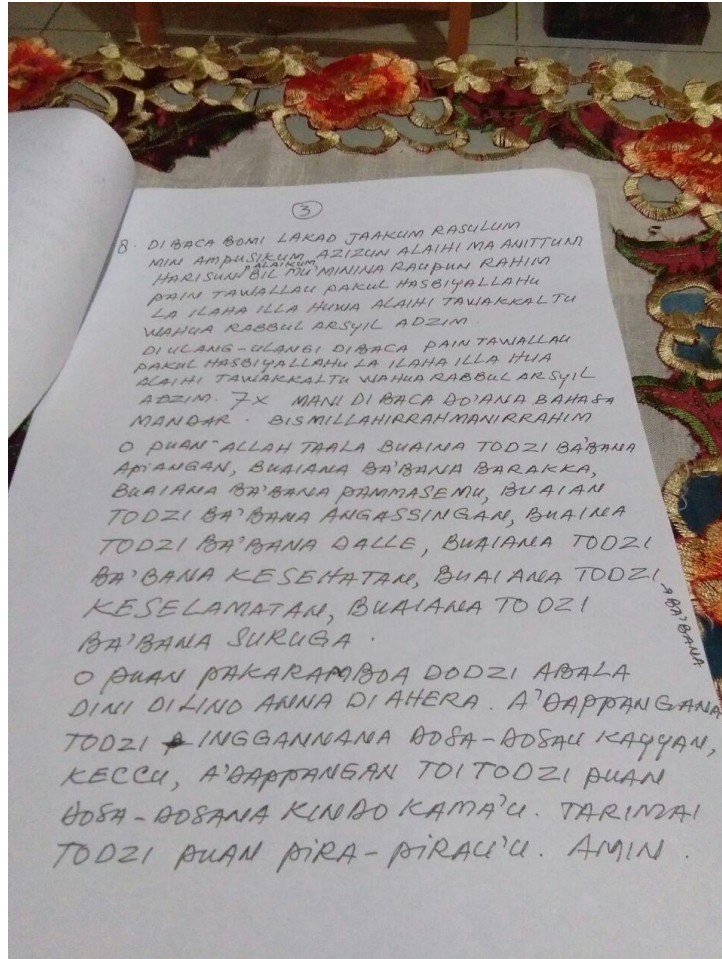 3
8. DIBACA BOMI LAKAD JAAKUM RASULUM
MIN AMPUSIKUM AZIZUN ALAIHI MA ANITTUM
HARISUN ALAIKUM BIL MU'MININA RAUPUN RAHIM
PAIN TAWALLAU PAKUL HASBIYALLAHU
LA ILAHA ILLA HUWA ALAIHI TAWAKKALTU
WAHUA RABBUL ARSYIL ADZIM.
DIULANG-ULANGI DIBACA PAIN TAWALLAU
PAKUL HASBIYALLAHU LA ILAHA ILLA HUA
ALAIHI TAWAKKALTU WAHUA RABBUL ARSYIL
ADZIM. 7X MANI DI BACA DO'ANA BAHASA
MANDAR. BISMILLAHIRRAHMANIRRAHIM
O PUAN-ALLAH TAALA BUAINA TODZI BA'BANA
APIANGAN, BUAIANA BA'BANA BARAKKA,
BUAIANA BA'BANA PAMMASEMU, BUAIAN
TODZI BA'BANA ANGASSINGAN, BUAINA
TODZI BA'BANA DALLE, BUAIANA TODZI
BA'BANA KESEHATAN, BUAIANA TODZI BA'BANA
KESELAMATAN, BUAIANA TODZI
BA'BANA SURUGA.
O PUAN PAKARAMBOA DODZI ABALA
DINI DILINO ANNA DI AHERA. A'DAPPANGANA
TODZI INGGANNANA DOSA-DOSAU KAYYAN,
KECCU, A'DAPPANGAN TOI TODZI PUAN
DOSA-DOSANA KINDO KAMA'U. TARIMAI
TODZI PUAN PIRA-PIRAU'U. AMIN.